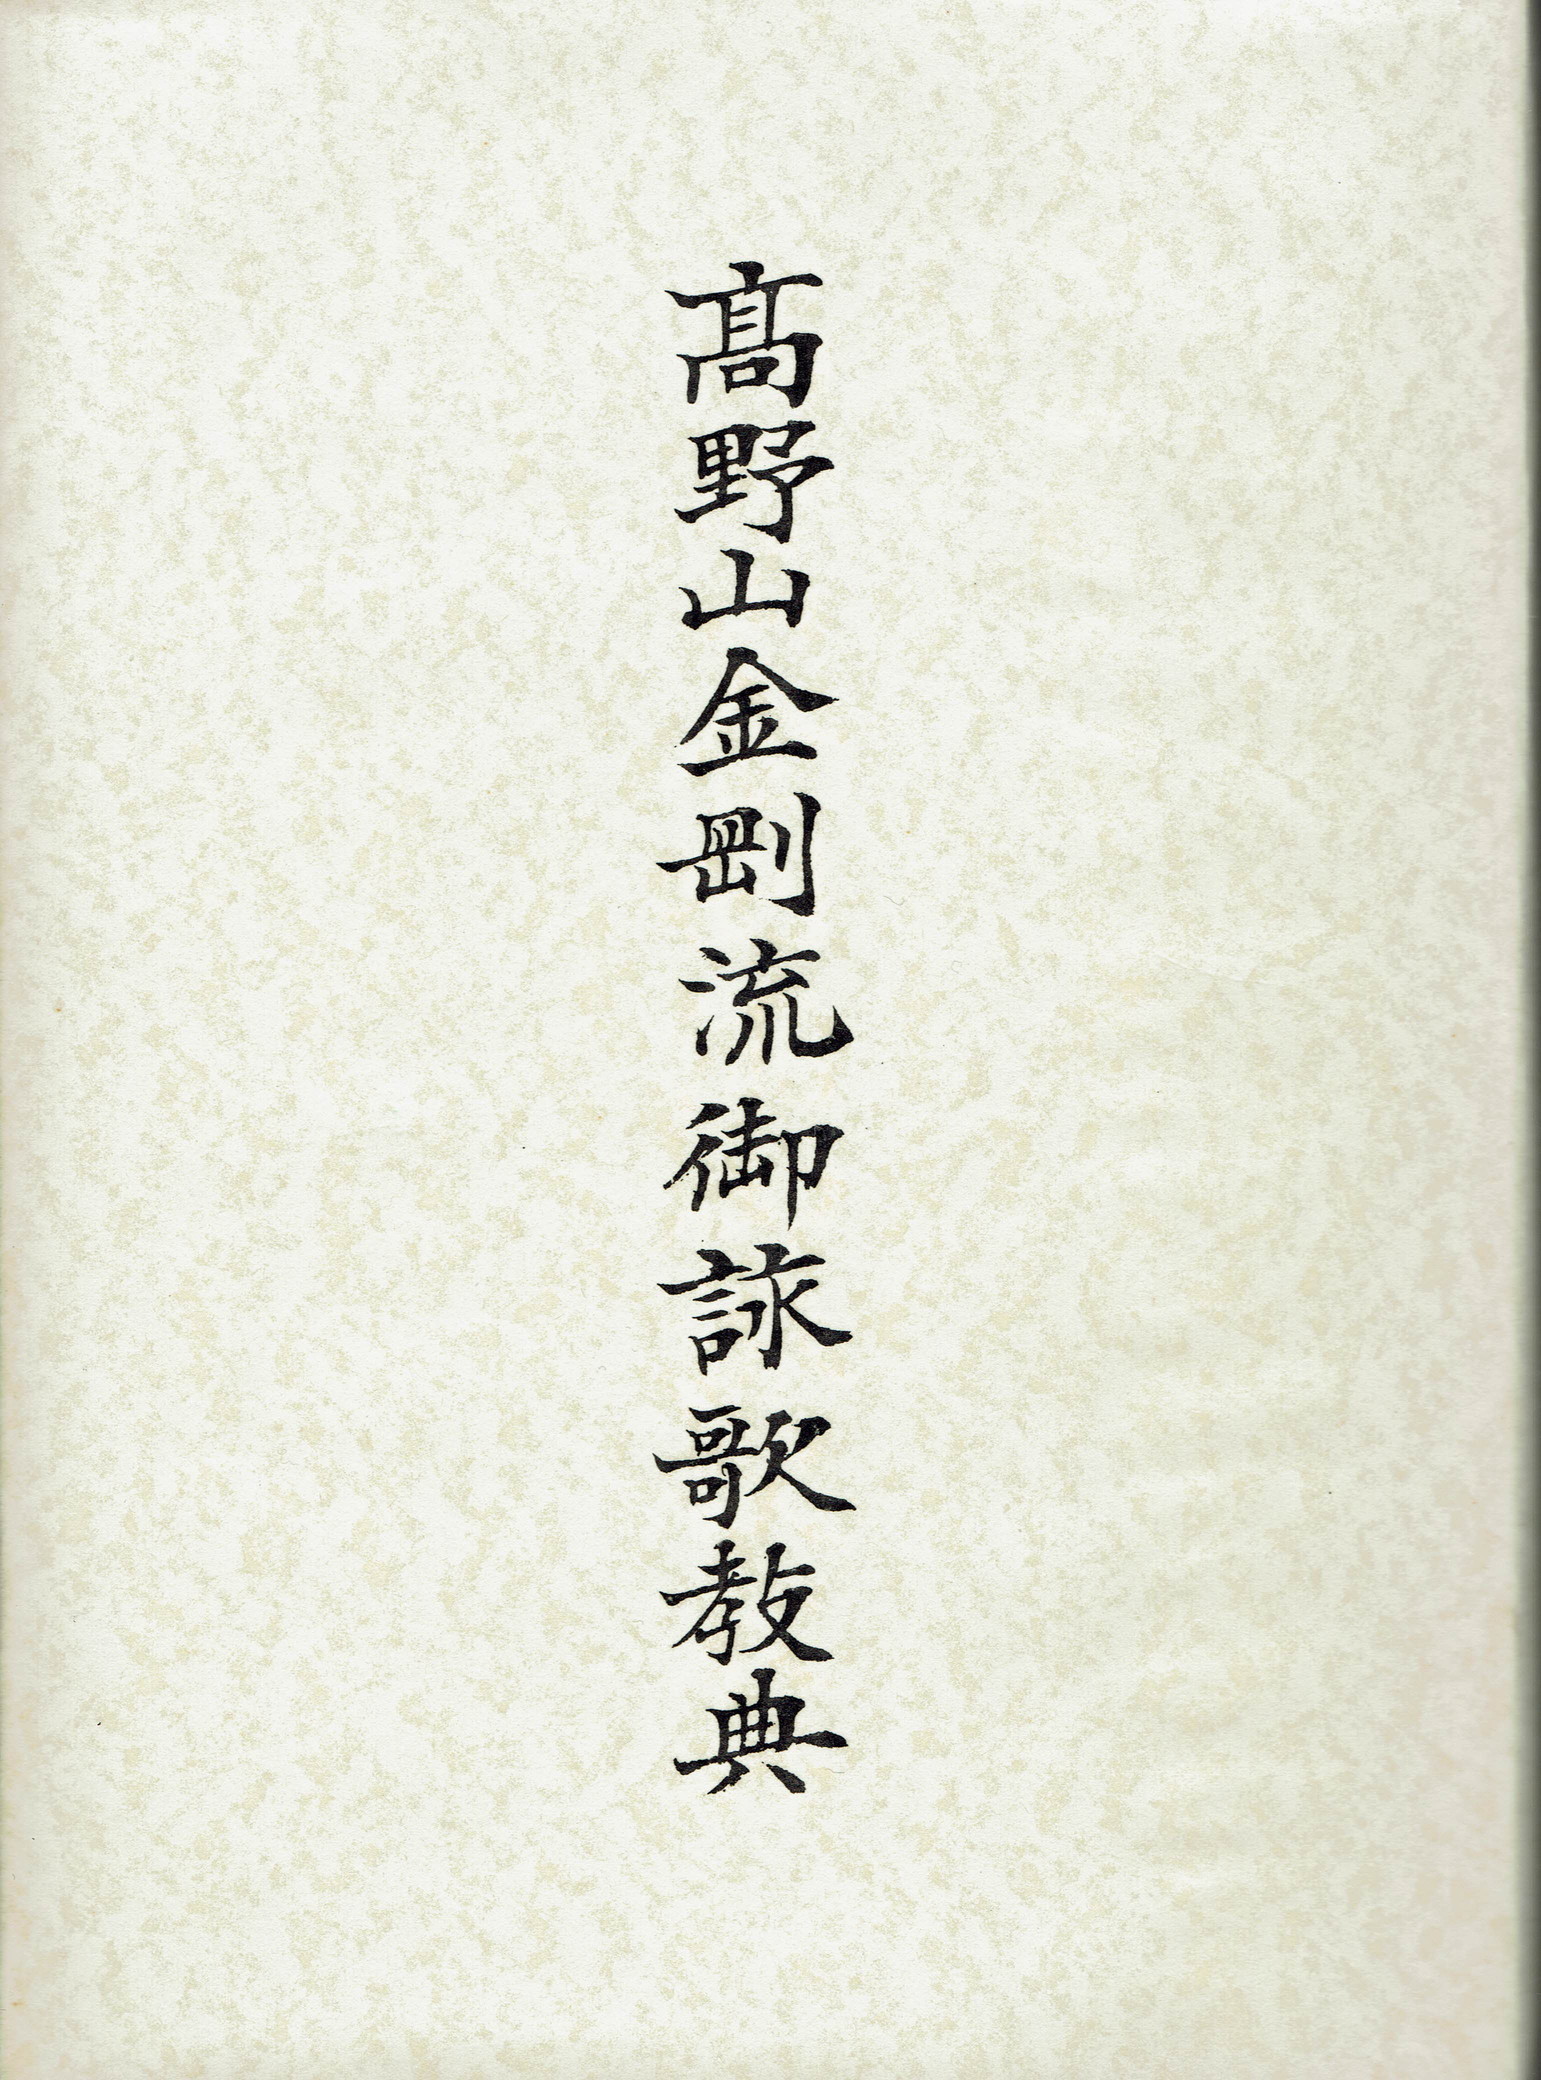 髙野山金剛流御詠歌教典